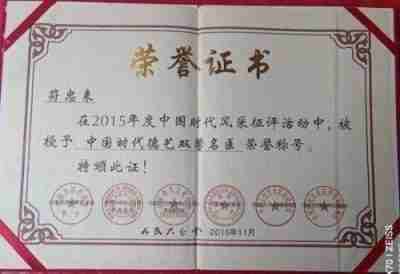 荣誉证书
蒋忠来
在2015年度中国时代风采征评活动中，被
授予 中国时代德艺双馨名医 荣誉称号。
特颁此证！
人民大会堂 2015年11月
X70 | ZEISS